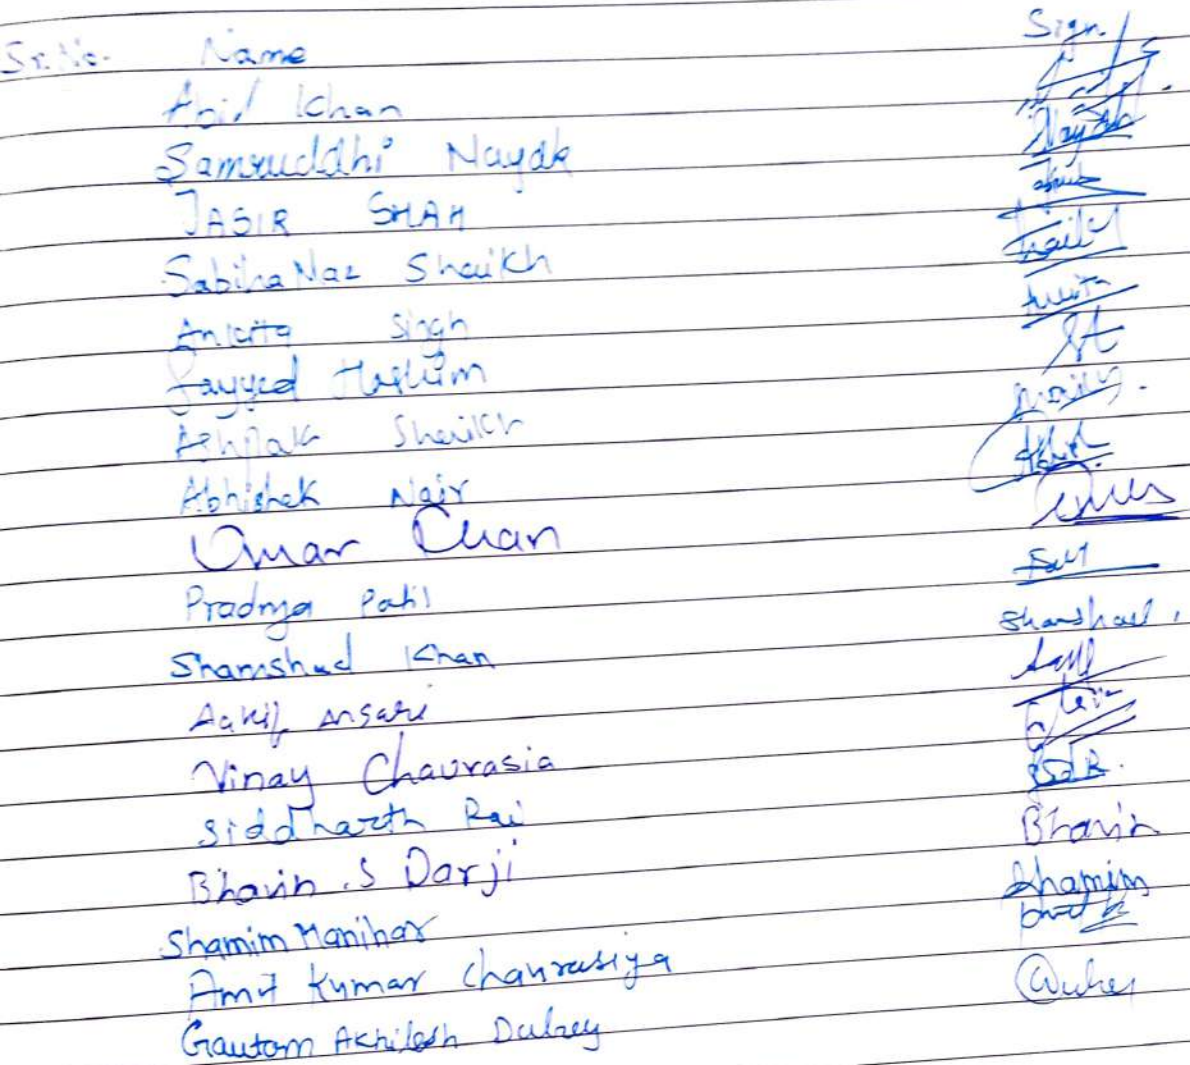 Sr. No. Name Sign.
Abid Khan
Samruddhi Nayak Nayak
JASIR SHAH
Sabiha Naz Shaikh
Ankita Singh Ankita
Sayyed Hashim
Ashpak Shaikh
Abhishek Nair
Umar Khan
Pradnya Patil
Shamshad Khan Shamshad
Aakif Ansari
Vinay Chaurasia
Siddharth Rai
Bhavin .S Darji Bhavin
Shamim Manihar Shamim
Amit Kumar Chaurasiya
Gautam Akhilesh Dubey